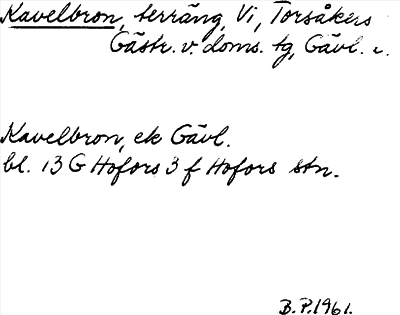 Kavelbron, terräng, Vi, Torsåkers
Gästr. v. doms. tg, Gävl. l.
Kavelbron, ek Gävl.
bl. 13 G Hofors 3 f Hofors stn.
B.P. 1961.